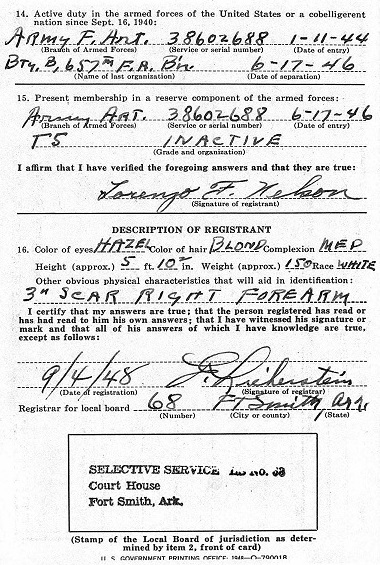 14. Active duty in the armed forces of the United States or a cobelligerent
nation since Sept. 16, 1940:
ARMY F. ART. 38602688 1-11-44
(Branch of Armed Forces) (Service or serial number) (Date of entry)
BTY. B, 657TH F.A. BN. 6-17-46
(Name of last organization) (Date of separation)
15. Present membership in a reserve component of the armed forces:
ARMY ART. 38602688 6-17-46
(Branch of Armed Forces) (Service or serial number) (Date of entry)
T5 INACTIVE
(Grade and organization)
I affirm that I have verified the foregoing answers and that they are true:
Lorenzo F. Nelson
(Signature of registrant)
DESCRIPTION OF REGISTRANT
16. Color of eyes HAZEL Color of hair BLOND Complexion MED
Height (approx.) 5 ft. 10 in. Weight (approx.) 150 Race WHITE
Other obvious physical characteristics that will aid in identification:
3" SCAR RIGHT FOREARM
I certify that my answers are true; that the person registered has read or
has had read to him his own answers; that I have witnessed his signature or
mark and that all of his answers of which I have knowledge are true,
except as follows:
9/4/48
(Date of registration) (Signature of registrar)
Registrar for local board 68 Ft Smith Ark
(Number) (City or county) (State)
SELECTIVE SERVICE NO. 68
Court House
Fort Smith, Ark.
(Stamp of the Local Board of jurisdiction as deter-
mined by item 2, front of card)
U. S. GOVERNMENT PRINTING OFFICE: 1948—O-79001B